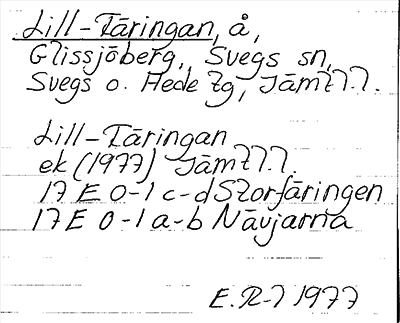 Lill-Tāringan, å,
Glissjōberg, Svegs sn,
Svegs o. Hede tg, Jāmtl.
Lill-Tāringan
ek (1977) Jāmtl.
17 E 0-1 c-d Storfāringen
17 E 0-1 a-b Nāvjarna
E. R-l 1977